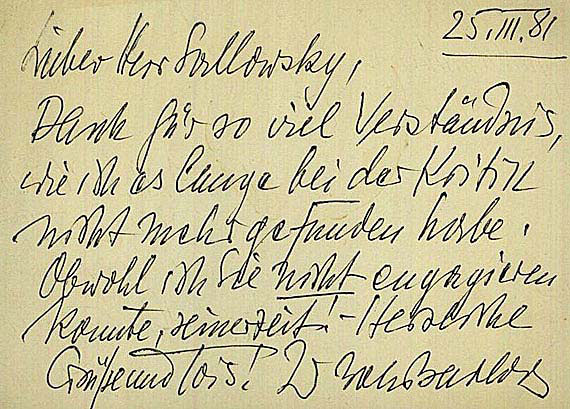 25.III.81
Lieber Herr Sallowsky,
Dank für so viel Verständnis,
wie ich es lange bei der Kritik
nicht mehr gefunden habe.
Obwohl ich Sie nicht engagieren
konnte, seinerzeit! – Herzliche
Grüße und